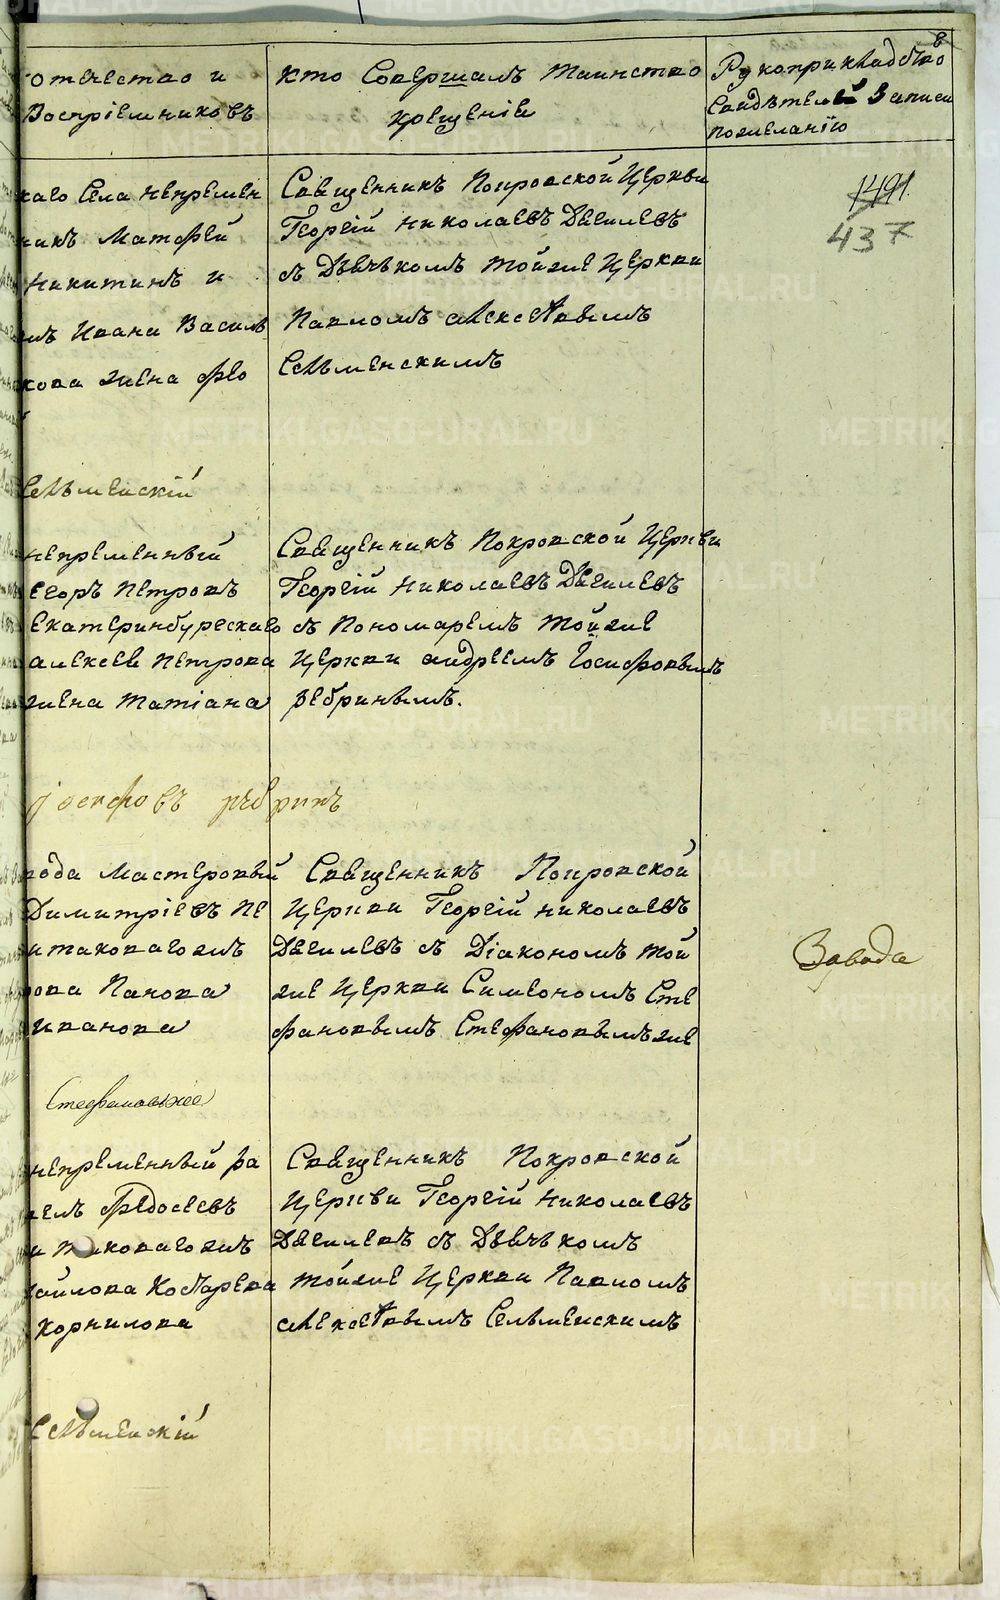 8
отечество и
Воспріемниковъ
Кто Совершалъ Таинство
Крещенія
Рукоприкладство
Свидѣтелей Записи
по желанію
1491
437
каго Села непремен
никъ Матфей
Никитинъ и
Ивана Василь
кова жена Ѳео
Священникъ Покровской Церкви
Георгій Николаевъ Дягилевъ
съ Дьячкомъ той же Церкви
Павломъ Алексѣевымъ
Сельменскимъ
Сельменскій
непременный
Егоръ Петровъ
Екатеринбургскаго
Алексея Петрова
жена Татіана
Священникъ Покровской Церкви
Георгій Николаевъ Дягилевъ
съ Пономаремъ той же
Церкви Андреемъ Іосифовымъ
Ребринымъ.
Іосифовъ Ребринъ
вода Мастеровый
Димитріевъ Пе
и таковаго жъ
рова Панова
Иванова
Священникъ Покровской
Церкви Георгій Николаевъ
Дягилевъ съ Діакономъ той
же Церкви Симеономъ Сте
фановымъ Стефановымъ же
Завода
Стефановъ же
непременный ра
Ѳедосеевъ
и таковаго жъ
Косарева
Корнилова
Священникъ Покровской
Церкви Георгій Николаевъ
Дягилевъ съ Дьячкомъ
той же Церкви Павломъ
Алексѣевымъ Сельменскимъ
Сельменскій
METRIKI.GASO-URAL.RU